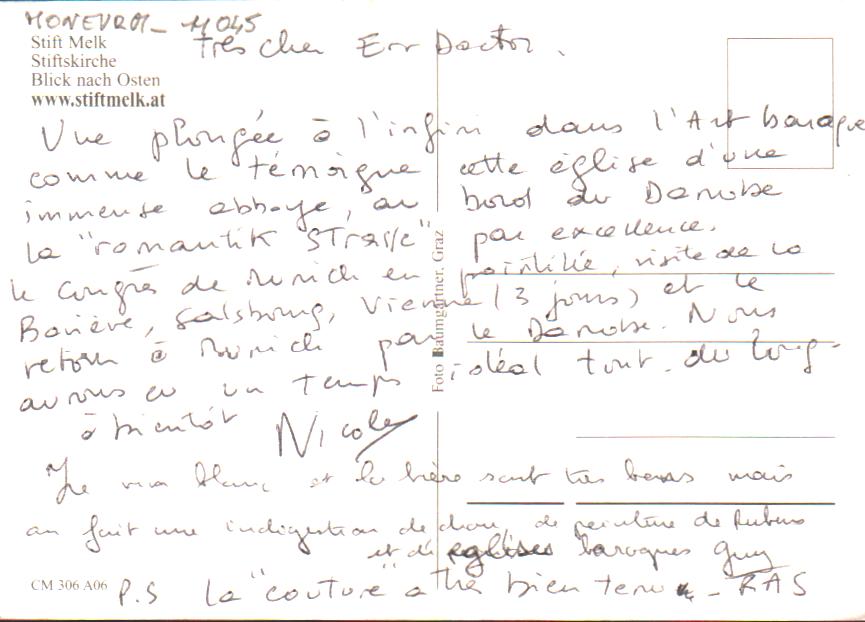 MONEVROI - 11045
Stift Melk
Stiftskirche
Blick nach Osten
www.stiftmelk.at
Très cher Err Doctor.
Vue plongée à l'infini dans l'Art baroque
comme le témoigne cette église d'une
immense abbaye, au bord du Danube
la "romantik Strasse" par excellence.
le congrès de Munich en pointillée, visite de la
Bavière, Salsbourg, Vienne (3 jours) et le
retour à Munich par le Danube. Nous
avons eu un temps idéal tout du long.
à bientôt Nicole
Le vin blanc et la bière sont très bons mais
on fait une indigestion de choux, de peinture de Rubens
et d'églises baroques Guy
P.S La "couture" a très bien tenu - RAS
Foto Baumgartner, Graz
CM 306 A06